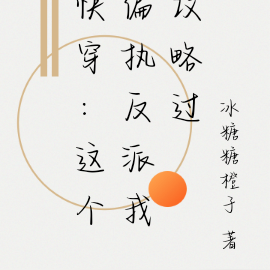 快穿：这个
偏执反派我
攻略过
冰糖糖橙子 著